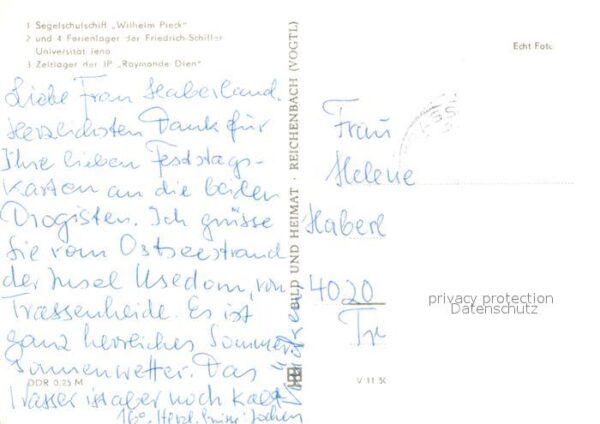 1 Segelschulschiff „Wilhelm Pieck"
2 und 4 Ferienlager der Friedrich-Schiller
Universität Jena
3 Zeltlager der JP „Raymonde Dien"
Liebe Frau Haberland.
Herzlichsten Dank für
Ihre lieben Festtags-
karten an die beiden
Drogisten. Ich grüsse
Sie vom Ostseestrand
der Insel Usedom, von
Trassenheide. Es ist
ganz herrliches Sommer
Sonnenwetter. Das
Wasser ist aber noch kalt
16°. Herzl. Grüsse Jochen
DDR 0,25 M
BILD UND HEIMAT · REICHENBACH (VOGTL)
V 11 50
Echt Foto
Frau
Helene
Haberl
4020
privacy protection
Datenschutz